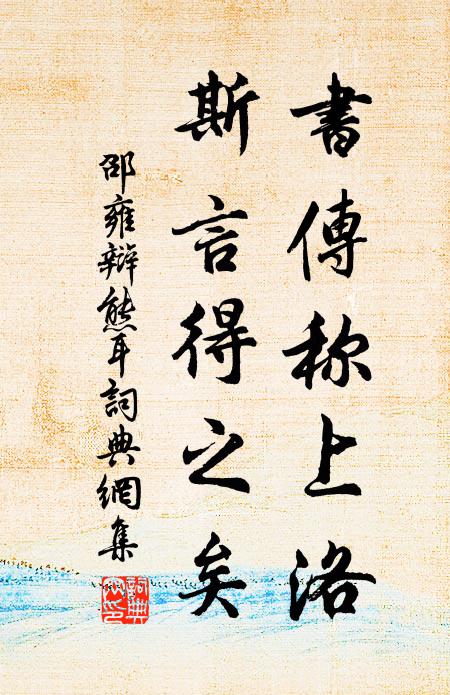 書傳称上洛
斯言得之矣
邵雍辯熊耳詞典網集